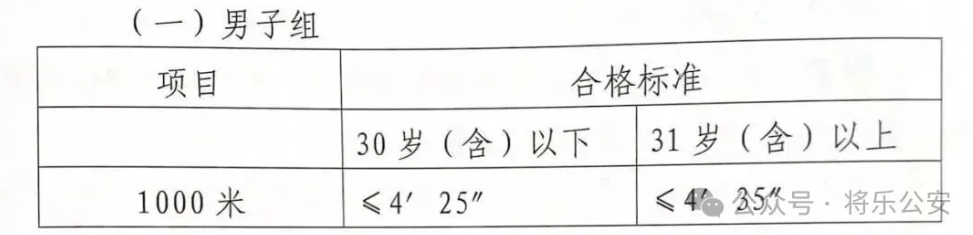 （一）男子组
项目 合格标准
30岁（含）以下 31岁（含）以上
1000米 ≤4′25″ ≤4′35″
公众号·将乐公安